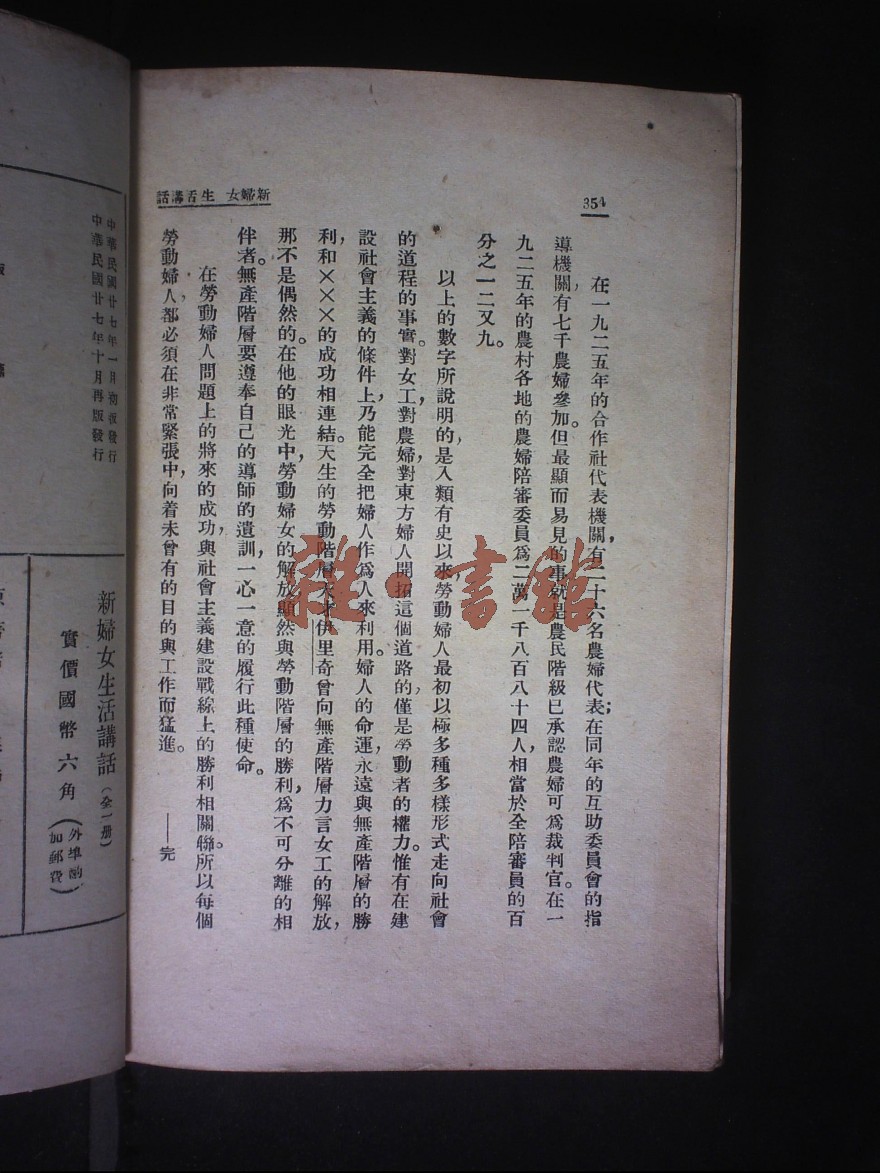 354
新婦女 生活講話
在一九二五年的合作社代表機關,有二十六名農婦代表;在同年的互助委員會的指
導機關,有七千農婦參加。但最顯而易見的事就是農民階級已承認農婦可爲裁判官。在一
九二五年的農村各地的農婦陪審委員爲二萬一千八百八十四人,相當於全陪審員的百
分之一二又九。
以上的數字所說明的,是人類有史以來,勞動婦人最初以極多種多樣形式走向社會
的道程的事實。對女工,對農婦,對東方婦人開拓這個道路的,僅是勞動者的權力。惟有在建
設社會主義的條件上,乃能完全把婦人作爲人來利用。婦人的命運,永遠與無產階層的勝
利,和×××的成功相連結。天生的勞動階層天才伊里奇曾向無產階層力言女工的解放,
那不是偶然的。在他的眼光中,勞動婦女的解放顯然與勞動階層的勝利,爲不可分離的相
伴者。無產階層要遵奉自己的導師的遺訓,一心一意的履行此種使命。
在勞動婦人問題上的將來的成功,與社會主義建設戰線上的勝利相關聯。所以每個
勞動婦人,都必須在非常緊張中,向着未曾有的目的與工作而猛進。 ——完
雜·書館
中華民國廿七年一月初版發行
中華民國廿七年十月再版發行
新婦女生活講話(全一册)
實價國幣六角(外埠酌加郵費)